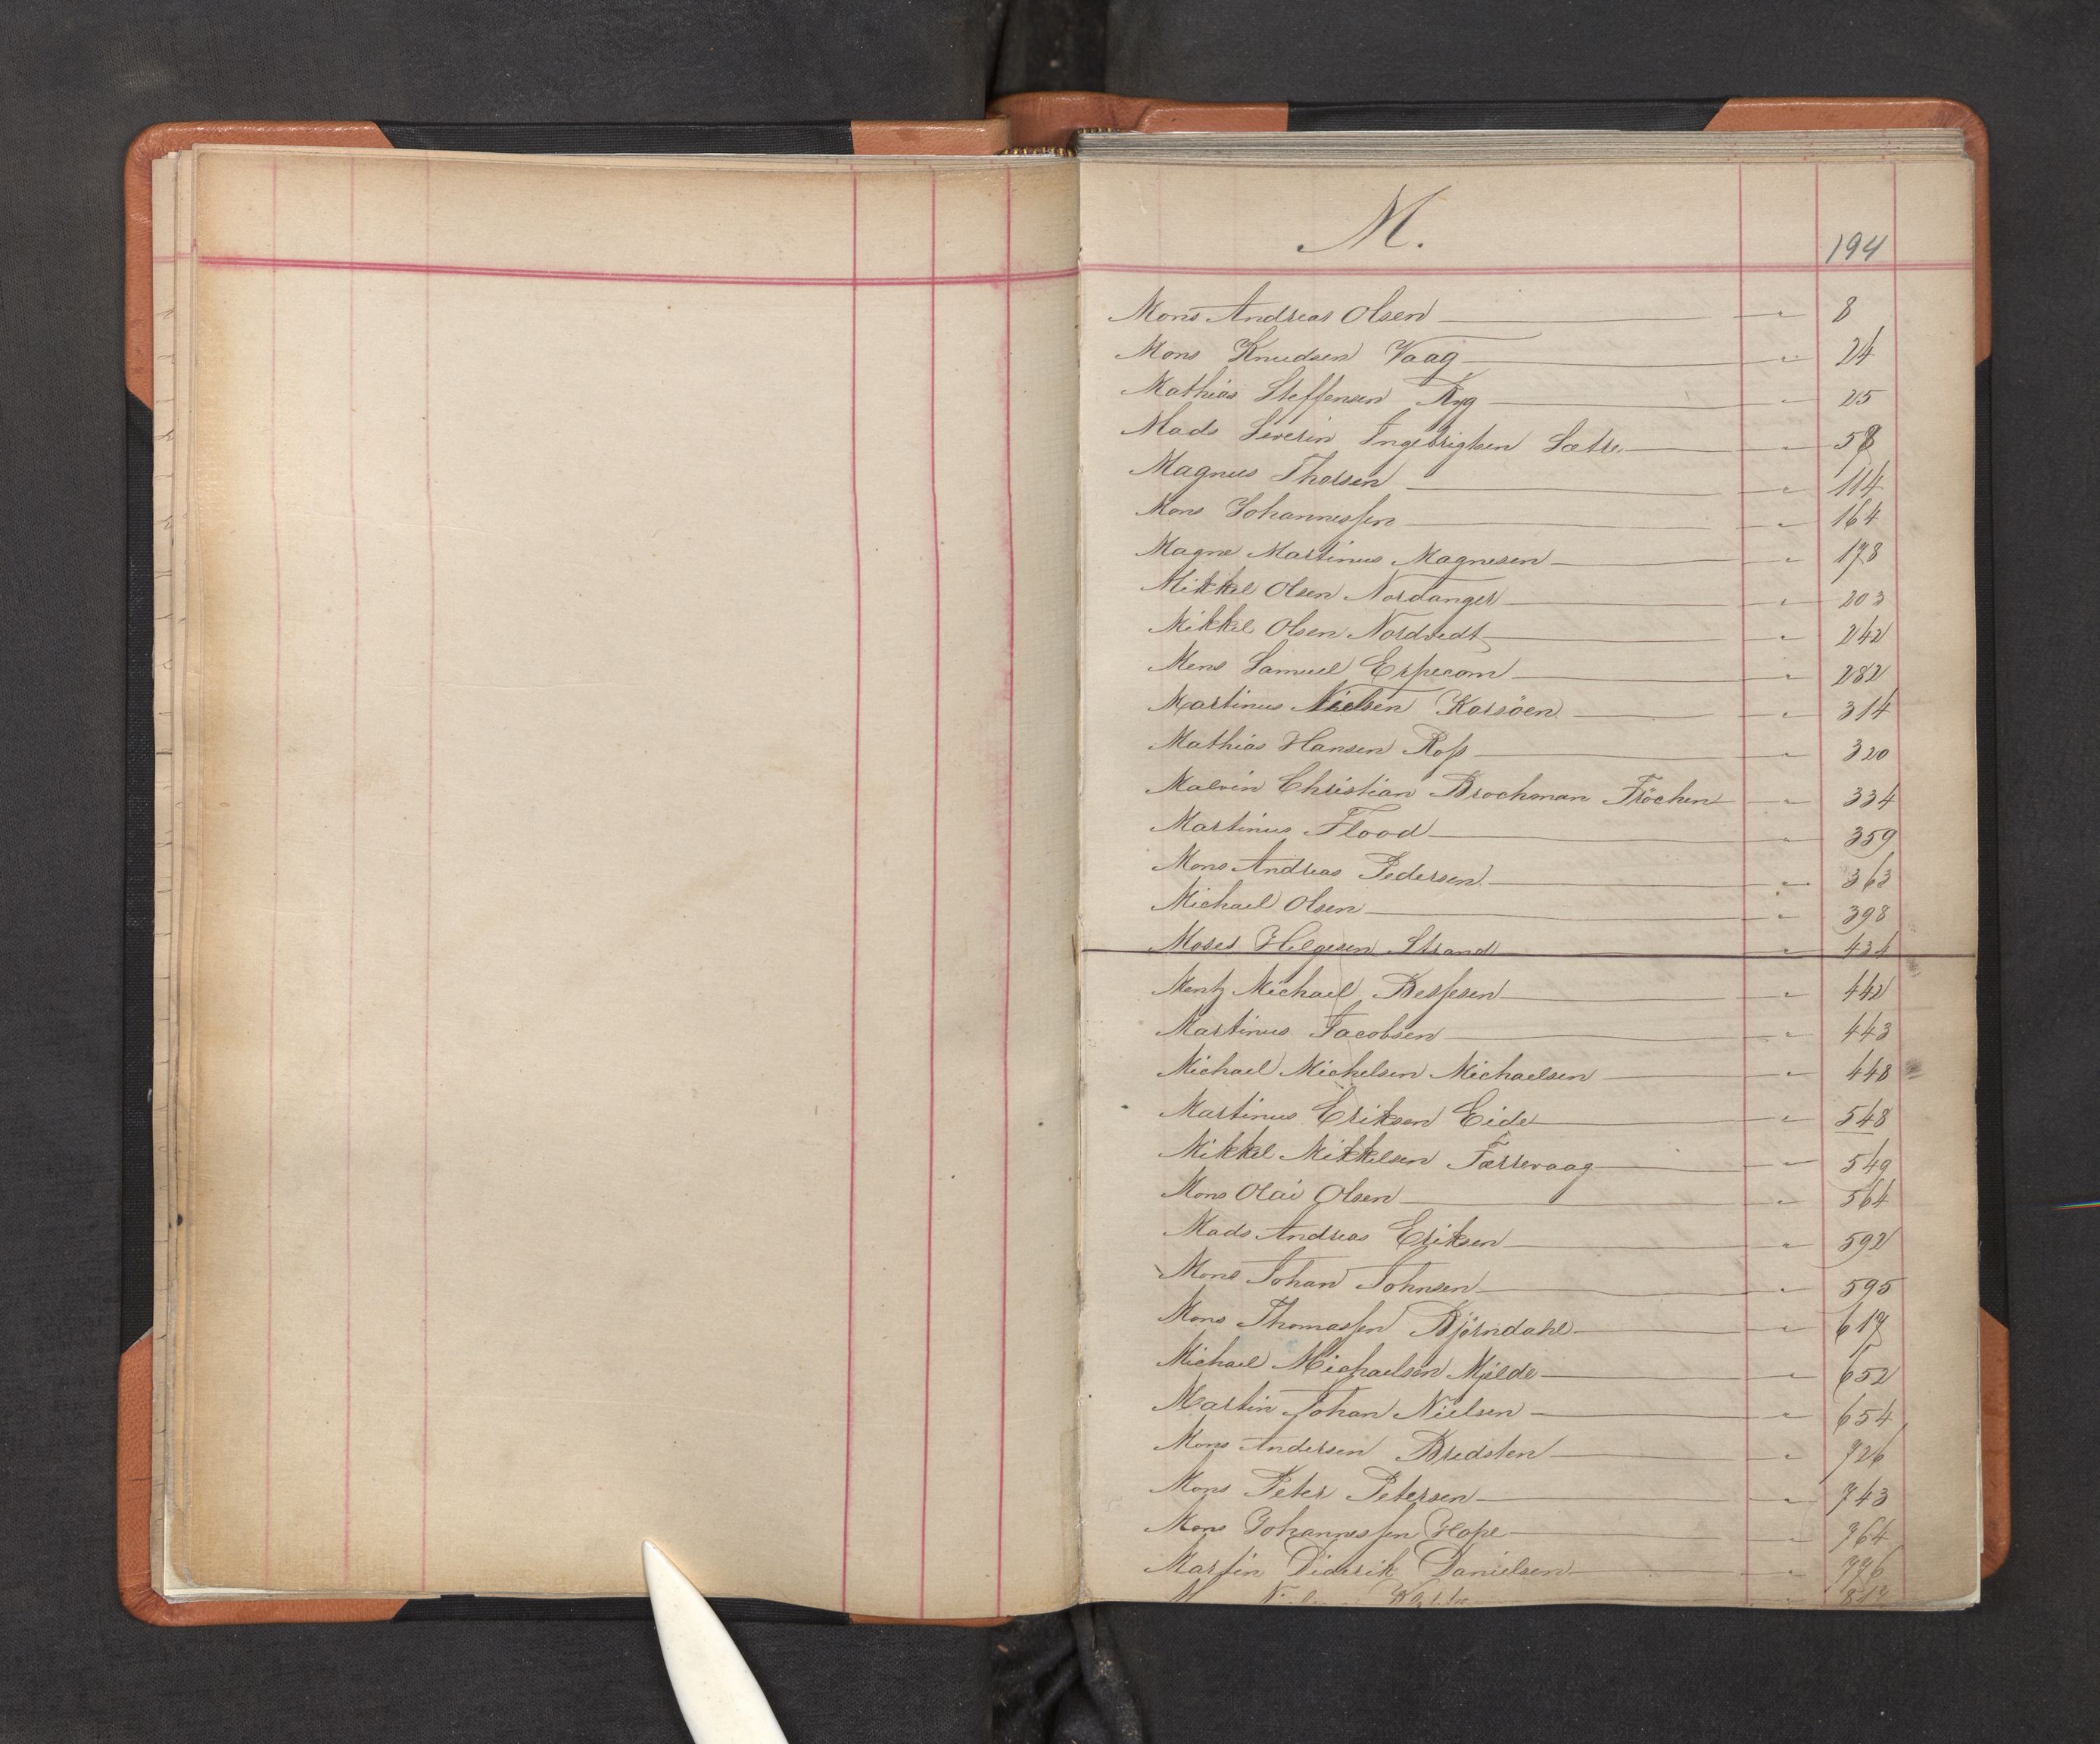 M.
194
Mons Andreas Olsen — " 8
Mons Knudsen Vaag — " 24
Mathias Steffensen Ryg — " 25
Mads Severin Ingebrigtsen Sætre — " 58
Magnus Thorsen — " 114
Mons Johannessen — " 164
Magne Martinus Magnesen — " 178
Mikkel Olsen Nordanger — " 203
Mikkel Olsen Nordvedt — " 242
Mens Samuel Erpecom — " 282
Martinus Nielsen Korsöen — " 314
Mathias Hansen Ross — " 320
Malvin Christian Brochman Fröchen — " 334
Martinus Flood — " 359
Mons Andreas Pedersen — " 363
Michael Olsen — " 398
Moses Helgesen Strand — " 434
Mentz Michael Besfesen — " 442
Martinus Jacobsen — " 443
Michael Michelsen Michaelsen — " 448
Martinus Eriksen Eide — " 548
Mikkel Mikkelsen Færrevaag — " 549
Mons Olai Olsen — " 564
Mads Andreas Eriksen — " 592
Mons Johan Johnsen — " 595
Mons Thomassen Björndahl — " 617
Michael Michaelsen Mjelde — " 652
Martin Johan Nielsen — " 654
Mons Andersen Bredsten — " 726
Mons Peter Petersen — " 743
Mons Johannessen Hope — " 764
Martin Diderik Danielsen — " 776